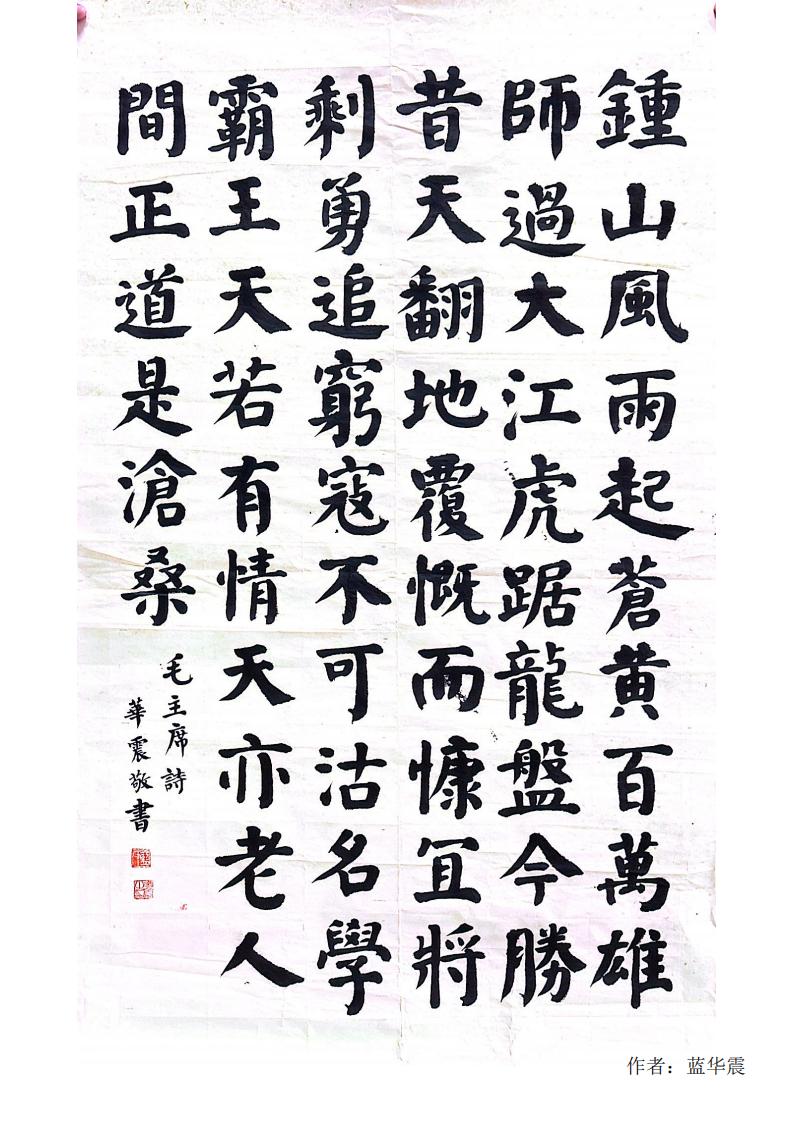 鍾山風雨起蒼黄百萬雄
師過大江虎踞龍盤今勝
昔天翻地覆慨而慷宜將
剩勇追窮寇不可沽名學
霸王天若有情天亦老人
間正道是滄桑
毛主席詩
華震敬書
作者：蓝华震